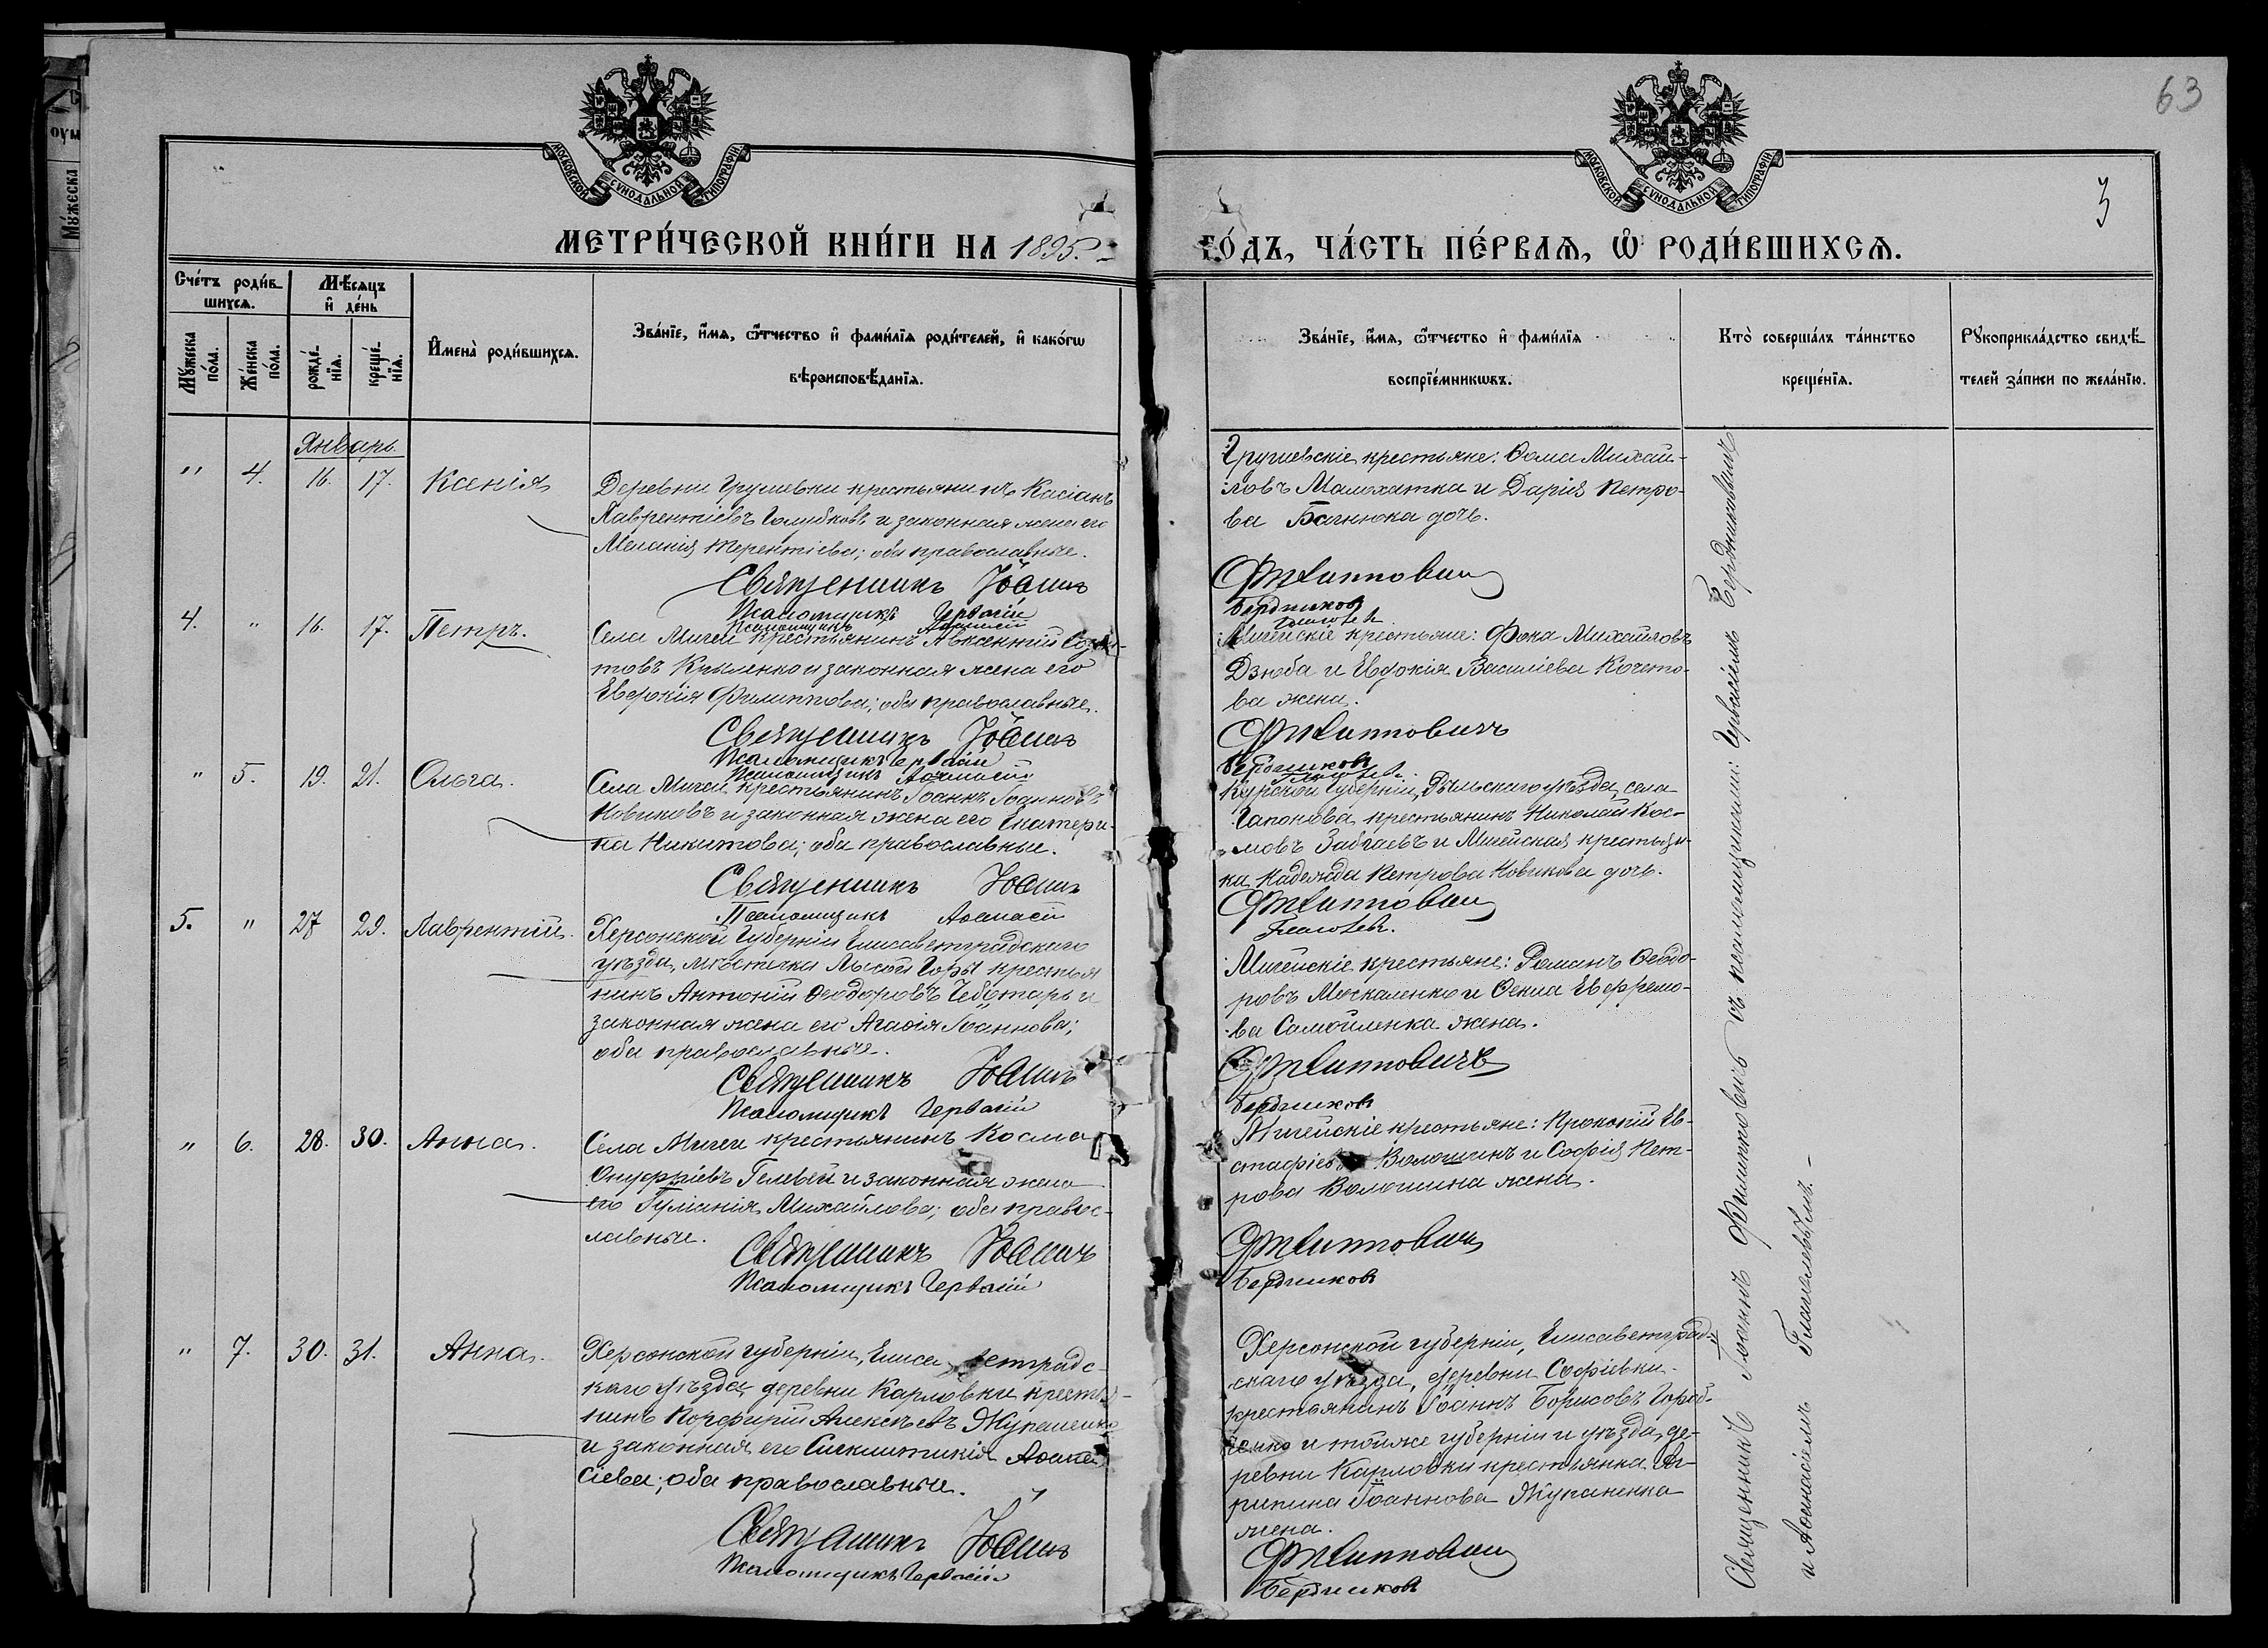 63
3
МОСКОВСКОЙ СУНОДАЛЬНОЙ ТИПОГРАФІИ
МОСКОВСКОЙ СУНОДАЛЬНОЙ ТИПОГРАФІИ
МЕТРИ́ЧЕСКОЙ КНИ́ГИ НА 1895.
ГО́ДЪ, ЧА́СТЬ ПЕ́РВАЯ, Ѡ҆ РОДИ́ВШИХСЯ.
Сче́тъ роди́в-
шихся.
Мꙋ́жеска по́ла.
Же́нска по́ла.
Мѣ́сяцъ
и҆ де́нь
рожде́-нїя.
креще́-нїя.
И҆мена̀ роди́вшихся.
Зва́нїе, и҆́мя, ѻ҆́тчество и҆ фами́лїя роди́телей, и҆ како́гѡ
вѣроисповѣ́данїя.
Зва́нїе, и҆́мя, ѻ҆́тчество и҆ фами́лїя
воспрїе́мникѡвъ.
Кто̀ соверша́лъ та́инство
креще́нїя.
Рꙋкоприкла́дство свидѣ́-
телей за́писи по жела́нїю.
Январь.
" 4. 16. 17. Ксенія
Деревни Грушевки крестьянинъ Касіанъ
Лаврентіевъ Голубковъ и законная жена его
Меланія Терентіева; оба православные.
Священникъ Іоаннъ
Псаломщикъ Гервасій
Псаломщикъ Аѳанасій
Грушевскіе крестьяне: Ѳома Михай-
ловъ Малохатка и Дарія Петро-
ва Багнюка дочь.
Филипповичъ
Бердников
4. " 16. 17. Петръ.
Села Мигеи крестьянинъ Авксентій
товъ Крыленко и законная жена его
Евдокія Филиппова; оба православные.
Священникъ Іоаннъ
Псаломщикъ Гервасій
Псаломщикъ Аѳанасій
Мигейскіе крестьяне: Фока Михайловъ
Дзюба и Евдокія Василіева Кочето-
ва жена.
Филипповичъ
Бердников
" 5. 19. 21. Ольга.
Села Мигеи крестьянинъ Іоаннъ Іоанновъ
Новиковъ и законная жена его Екатери-
на Никитова; оба православные.
Священникъ Іоаннъ
Псаломщикъ Аѳанасій
Курской губерніи, Рыльскаго уѣзда, села
Гапонова крестьянинъ Николай Кос-
мовъ Забгаевъ и Мигейская крестьян-
ка Надежда Петрова Новикова дочь.
Филипповичъ
5. " 27 29. Лаврентій.
Херсонской губерніи Елисаветградскаго
уѣзда, мѣстечка Лысой Горы крестья
нинъ Антоній Ѳеодоровъ Чеботарь и
законная жена его Агаѳія Іоаннова;
оба православные.
Священникъ Іоаннъ
Псаломщикъ Гервасій
Мигейскіе крестьяне: Романъ Ѳеодо-
ровъ Москаленко и Ѳекла Евфремо-
ва Самойленка жена.
Филипповичъ
Бердников
" 6. 28. 30. Анна.
Села Мигеи крестьянинъ Косма
Онуфріевъ Гелевей и законная жена
его Гуліанія Михайлова; оба правос-
лавные.
Священникъ Іоаннъ
Псаломщикъ Гервасій
Мигейскіе крестьяне: Прокопій Ев-
стафіевъ Волошинъ и Софія Пет-
рова Волошина жена.
Филипповичъ
Бердников
" 7. 30. 31. Анна.
Херсонской губерніи, Елисаветградс-
каго уѣзда, деревни Карловки крестья-
нинъ Порфирій Алексѣевъ Жупаненко
и законная его Синклитикія Аѳана
сіева; оба православные.
Священникъ Іоаннъ
Псаломщикъ Гервасій
Херсонской губерніи, Елисаветград-
скаго уѣзда, деревни Софіевки
крестьянинъ Іоаннъ Борисовъ Гороб-
ченко и тойже губерніи и уѣзда, де-
ревни Карловки крестьянка Аг-
рипина Іоаннова Жупаненка
жена.
Филипповичъ
Бердников
Священникъ Іоаннъ Филипповичъ съ псаломщиками: Гервасіемъ Бердниковымъ
и Аѳанасіемъ Глаголевымъ.-